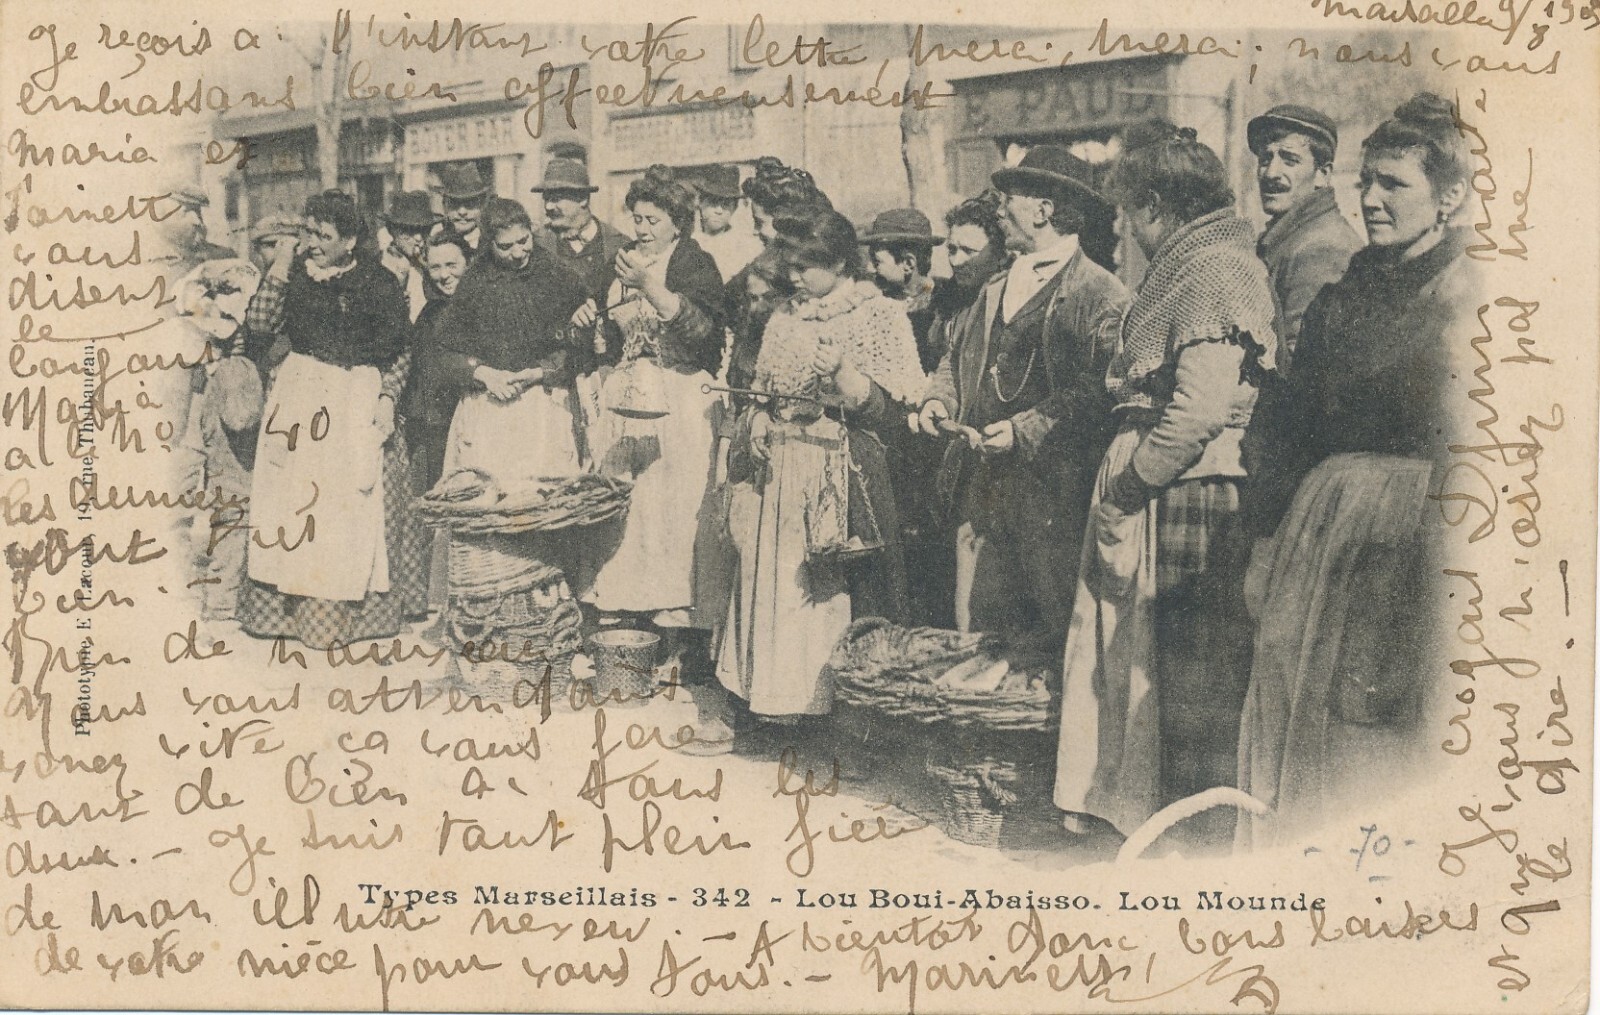 Marseille 9/8 1903
Je reçois a l'instant votre lettre, merci, merci; nous vous
embrassons bien affectueusement
Maria et
Toinette
vous
disent
le
bonjour
Maria
a le No
40
les dernières
sont très
bien. -
Rien de nouveau
Nous vous attendons
venez vite ça vous fera
tant de bien à tous les
deux. - Je suis tout plein fière
de mon illustre neveu. - A bientôt donc, bons baisers
de votre nièce pour vous tous. - Marinette
Je croyait Dfinn morte
et que vous n'osiez pas me
le dire. -
BOYER BAR
E PAUL
Phototypie E. Lacour, 19, rue Thubaneau.
- 70 -
Types Marseillais - 342 - Lou Boui-Abaisso. Lou Mounde